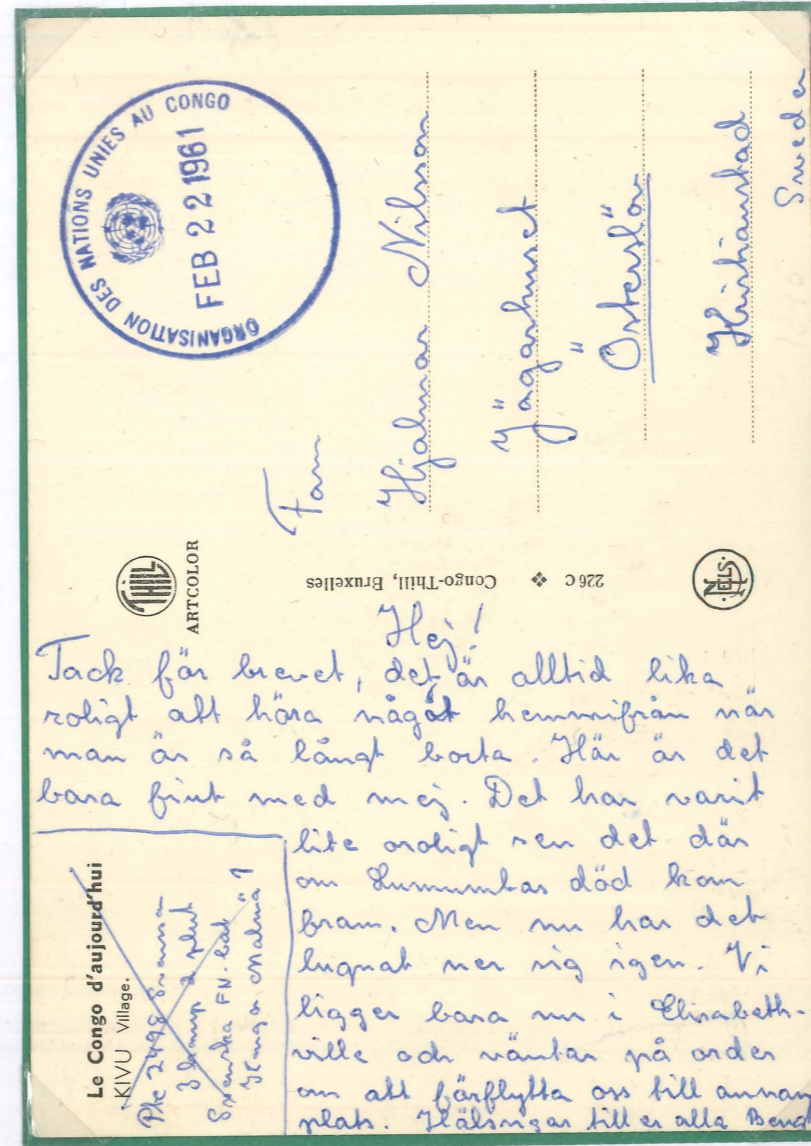 ORGANISATION DES NATIONS UNIES AU CONGO
FEB 22 1961
Fam
Hjalmar Nilsson
Jägarhuset
Österslöv
Kristianstad
Sweden
THILL
ARTCOLOR
226 C Congo-Thill, Bruxelles
NELS
Hej!
Tack för brevet, det är alltid lika
roligt att höra något hemmifrån när
man är så långt borta. Här är det
bara fint med mej. Det har varit
lite oroligt sen det där
om Lumumbas död kom
fram. Men nu har det
lugnat ner sig igen. Vi
ligger bara nu i Elisabeth-
ville och väntar på order
om att förflytta oss till annan
plats. Hälsningar till er alla
Le Congo d'aujourd'hui
KIVU Village.
2498
3 komp 2 plut
Svenska FN-bat
Kongo, Malmö 1